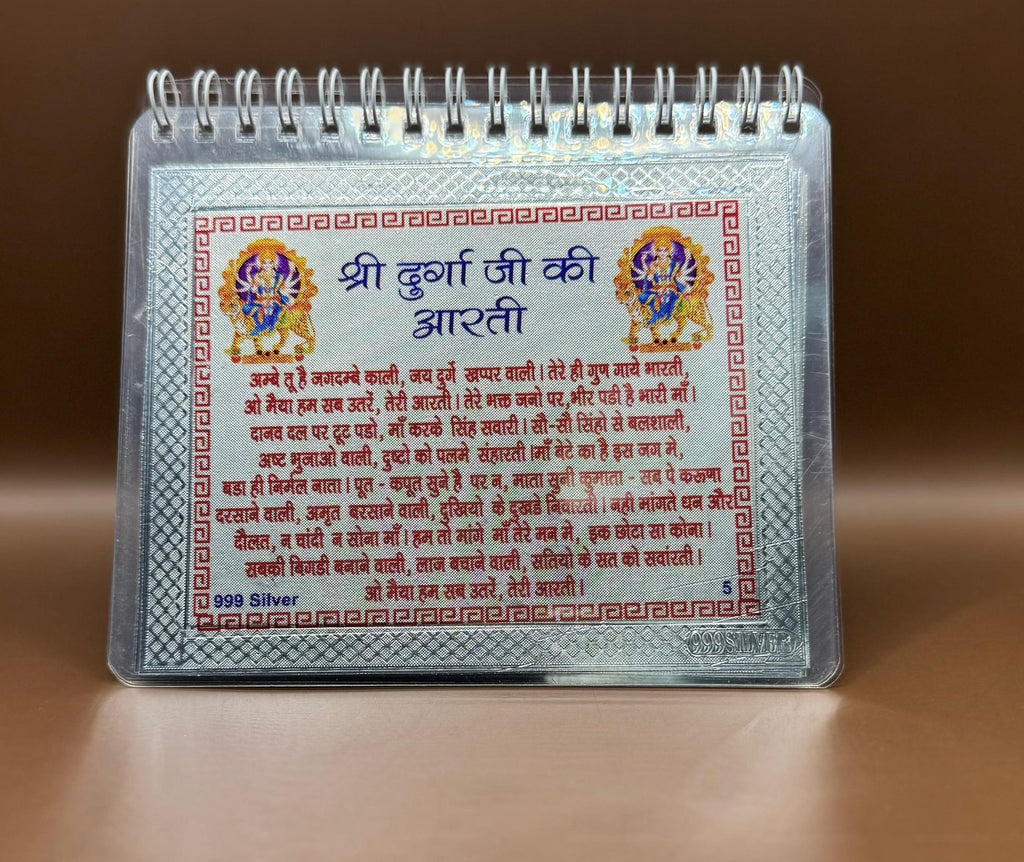 श्री दुर्गा जी की
आरती
अम्बे तू है जगदम्बे काली, जय दुर्गे खप्पर वाली। तेरे ही गुण गाये भारती,
ओ मैया हम सब उतरें, तेरी आरती। तेरे भक्त जनो पर,भीर पडी है भारी माँ।
दानव दल पर टूट पडो, माँ करके सिंह सवारी। सौ-सौ सिंहो से बलशाली,
अष्ट भुजाओ वाली, दुष्टो को पलमे संहारती।माँ बेटे का है इस जग मे,
बडा ही निर्मल नाता। पूत - कपूत सुने है पर न, माता सुनी कुमाता - सब पे करूणा
दरसाने वाली, अमृत बरसाने वाली, दुखियो के दुखडे निवारती। नही मांगते धन और
दौलत, न चांदी न सोना माँ। हम तो मांगे माँ तेरे मन मे, इक छोटा सा कोना।
सबकी बिगडी बनाने वाली, लाज बचाने वाली, सतियो के सत को सवांरती।
ओ मैया हम सब उतरें, तेरी आरती।
999 Silver
5
999 SILVER